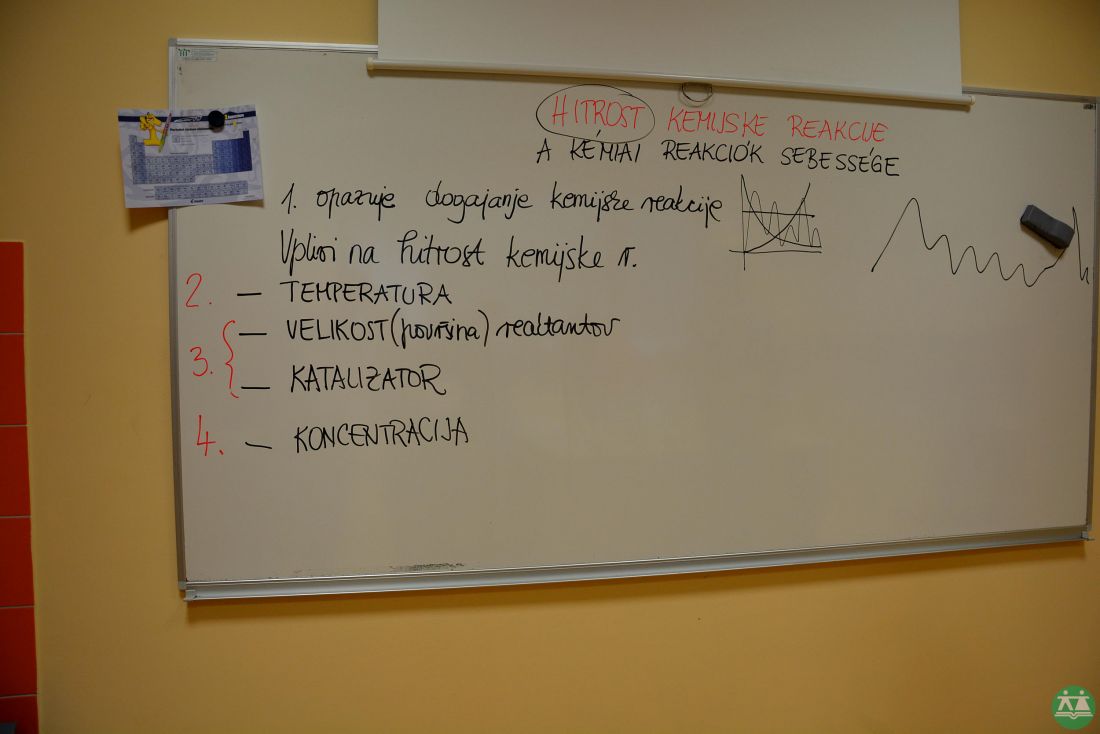 HITROST KEMIJSKE REAKCIJE
A KÉMIAI REAKCIÓK SEBESSÉGE
1. opazuje dogajanje kemijske reakcije
Vplivi na hitrost kemijske r.
2. — TEMPERATURA
3. { — VELIKOST (površina) reaktantov
— KATALIZATOR
4. — KONCENTRACIJA